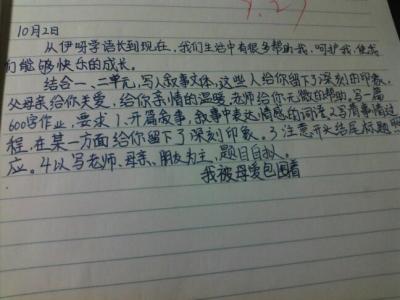 9.27
10月2日
从伊呀学语长到现在,我们生活中有很多帮助我,呵护我,使我
们能够快乐的成长。
结合一、二单元,写人叙事文体,这些人给你留下了深刻的印象。
父母亲给你关爱,给你亲情的温暖,老师给你无微的帮助。写一篇
600字作业,要求1.开篇叙事,叙事中表达情感的词语。2.写清事情过
程,在某一方面给你留下了深刻印象。3.注意开头结尾标题
应。4.以写老师、母亲、朋友为主,题目自拟。
我被母爱包围着